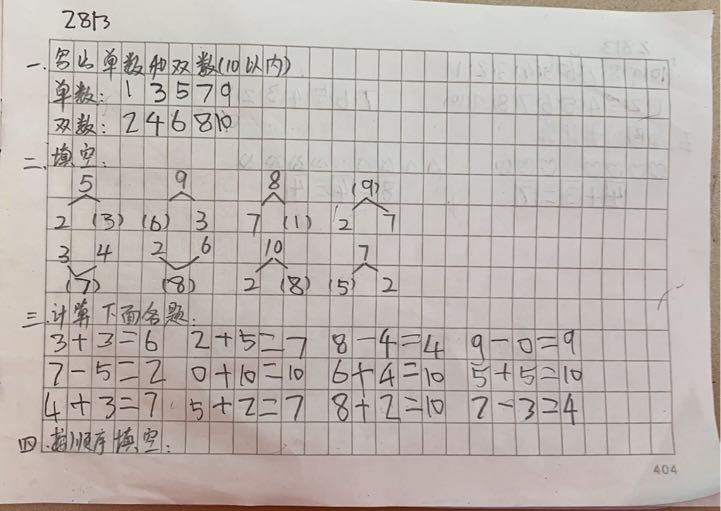 28日
一.写出单数和双数(10以内)
单数: 1 3 5 7 9
双数: 2 4 6 8 10
二.填空:
5 9 8 (9)
2 (3) (6) 3 7 (1) 2 7
3 4 2 6 10 7
(7) (8) 2 (8) (5) 2
三.计算下面各题:
3+3=6 2+5=7 8-4=4 9-0=9
7-5=2 0+10=10 6+4=10 5+5=10
4+3=7 5+2=7 8+2=10 7-3=4
四.按顺序填空:
404